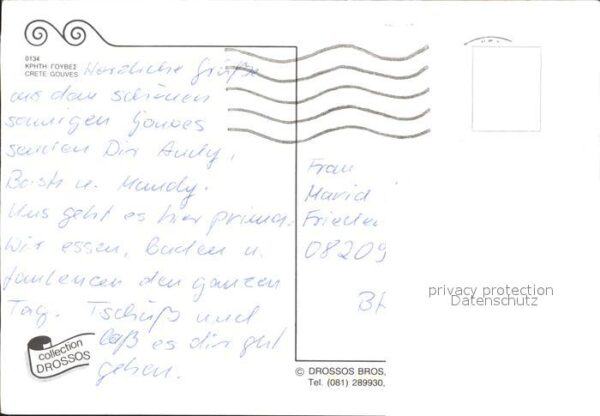 0134
ΚΡΗΤΗ ΓΟΥΒΕΣ
CRETE GOUVES
Herzliche Grüße
aus dem schönen
sonnigen Gouves
senden Dir Andy,
Basti u. Mandy.
Uns geht es hier prima.
Wir essen, baden u.
faulenzen den ganzen
Tag. Tschüß und
laß es dir gut
gehen.
collection
DROSSOS
Frau
Marid
Frieder
08209
privacy protection
Datenschutz
© DROSSOS BROS.
Tel. (081) 289930,